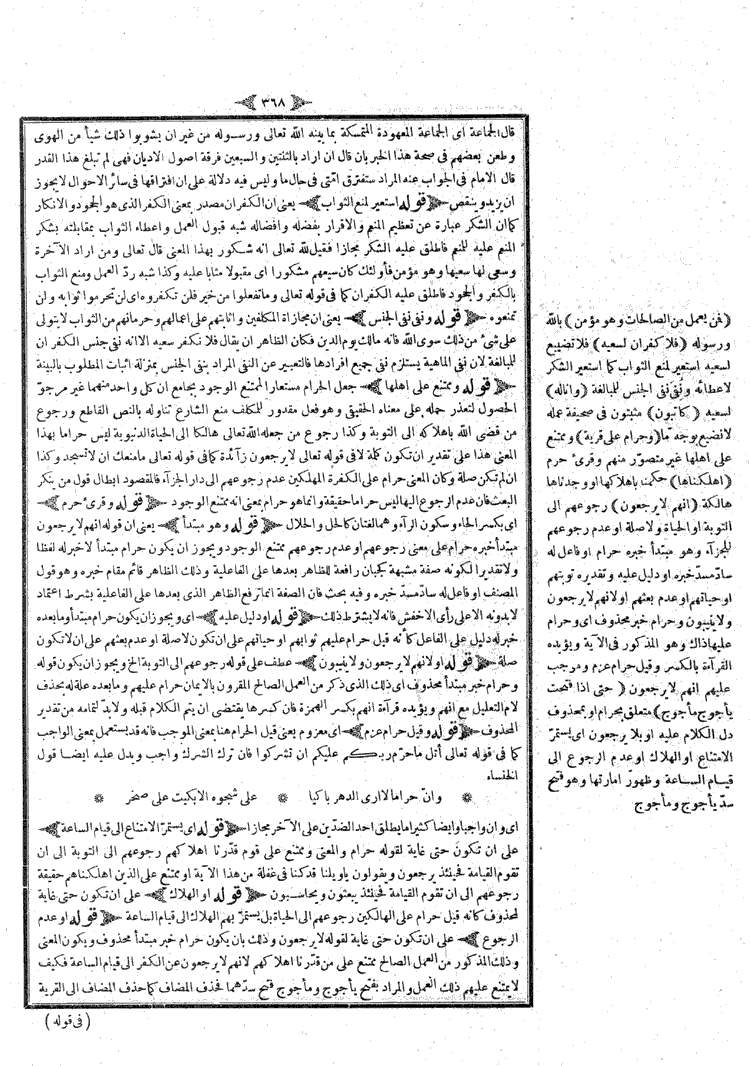 ﴿ ٣٦٨ ﴾
قال الجماعة اى الجماعة المعهودة المتمسكة بما بينه الله تعالى ورسوله من غير ان يشوبوا ذلك شيأ من الهوى
وطعن بعضهم فى صحة هذا الخبر بان قال ان اراد بالثنتين والسبعين فرقة اصول الاديان فهى لم تبلغ هذا القدر
قال الامام فى الجواب عنه المراد ستفترق امتى فى حال ما وليس فيه دلالة على ان افتراقها فى سائر الاحوال لايجوز
ان يزيد وينقص ﴿ قوله استعير لمنع الثواب ﴾ يعنى ان الكفران مصدر بمعنى الكفر الذى هو الجحود والانكار
كما ان الشكر عبارة عن تعظيم المنعم والاقرار بفضله وافضاله شبه قبول العمل واعطاء الثواب بمقابلته بشكر
المنعم عليه للمنعم فاطلق عليه الشكر مجازا فقيل لله تعالى انه شكور بهذا المعنى قال تعالى ومن اراد الآخرة
وسعى لها سعيها وهو مؤمن فأولئك كان سيعهم مشكورا اى مقبولا مثابا عليه وكذا شبه ردّ العمل ومنع الثواب
بالكفر والجحود فاطلق عليه الكفران كما فى قوله تعالى وماتفعلوا من خير فلن تكفروه اى لن تحرموا ثوابه ولن
تمنعوه ﴿ قوله ونفى نفى الجنس ﴾ يعنى ان مجازاة المكلفين واثابتهم على اعمالهم وحرمانهم من الثواب لايتولى
على شئ من ذلك سوى الله فانه مالك يوم الدين فكان الظاهر ان يقال فلا نكفر سعيه الا انه نفى جنس الكفر ان
للمبالغة لان نفى الماهية يستلزم نفى جميع افرادها فالتعبير عن النفى المراد بنفى الجنس بمنزلة اثبات المطلوب بالبينة
﴿ قوله وممتنع على اهلها ﴾ جعل الحرام مستعارا للممتنع الوجود بجامع ان كل واحد منهما غير مرجوّ
الحصول لتعذر حمله على معناه الحقيقى وهو فعل مقدور للمكلف منع الشارع تناوله بالنص القاطع ورجوع
من قضى الله باهلاكه الى التوبة وكذا رجوع من جعله الله تعالى هالكا الى الحياة الدنيوية ليس حراما بهذا
المعنى هذا على تقدير ان تكون كلمة لا فى قوله تعالى لايرجعون زآئدة كما فى قوله تعالى مامنعك ان لا تسجد وكذا
ان لم تكن صلة وكان المعنى حرام على الكفرة المهلكين عدم رجوعهم الى دار الجزآء فالمقصود ابطال قول من ينكر
البعث فان عدم الرجوع اليها ليس حراما حقيقة وانما هو حرام بمعنى انه ممتنع الوجود ﴿ قوله وقرئ حرم ﴾
اى بكسر الحاء وسكون الرآء وهما لغتان كالحل والحلال ﴿ قوله وهو مبتدأ ﴾ يعنى ان قوله انهم لايرجعون
مبتدأ خبره حرام على معنى رجوعهم او عدم رجوعهم ممتنع الوجود ويجوز ان يكون حرام مبتدأ لاخبر له لفظا
ولا تقديرا لكونه صفة مشبهة كجبان رافعة للظاهر بعدها على الفاعلية وذلك الظاهر قائم مقام خبره وهو قول
المصنف او فاعل له سادّ مسدّ خبره وفيه بحث فان الصفة انما ترفع الظاهر الذى بعدها على الفاعلية بشرط اعتماد
لابدونه الاعلى رأى الاخفش فانه لايشترط ذلك ﴿ قوله او دليل عليه ﴾ اى ويجوز ان يكون حرام مبتدأ ومابعده
خبر له دليل على الفاعل كأنه قيل حرام عليهم توابهم او حياتهم على ان تكون لاصلة او عدم بعثهم على ان لا تكون
صلة ﴿ قوله او لانهم لايرجعون ولاينيبون ﴾ عطف على قوله رجوعهم الى التوبة الخ ويجوز ان يكون قوله
وحرام خبر مبتدأ محذوف اى ذلك الذى ذكر من العمل الصالح المقرون بالايمان حرام عليهم ومابعده علة له بحذف
لام التعليل مع انهم ويؤيده قرآءة انهم بكسر الهمزة فان كسرها يقتضى ان يتم الكلام قبله ولابدّ لتمامه من تقدير
المحذوف ﴿ قوله وقيل حرام عزم ﴾ اى معزوم يعنى قيل الحرام هنا بمعنى الموجب فانه قد يستعمل بمعنى الواجب
كما فى قوله تعالى أتل ماحرّم ربكم عليكم ان تشركوا فان ترك الشرك واجب ويدل عليه ايضا قول
الخنساء
وانّ حراما لاارى الدهر باكيا * على شجوه الابكيت على صخر
اى وان واجبا وايضا كثيرا مايطلق احد الضدّين على الآخر مجازا ﴿ قوله اى يستمرّ الامتناع الى قيام الساعة ﴾
على ان تكون حتى غاية لقوله حرام والمعنى وممتنع على قوم قدّرنا اهلاكهم رجوعهم الى التوبة الى ان
تقوم القيامة فحينئذ يرجعون ويقولون ياويلنا قدكنا فى غفلة من هذا الآية او ممتنع على الذين اهلكناهم حقيقة
رجوعهم الى ان تقوم القيامة فحينئذ يبعثون ويحاسبون ﴿ قوله او الهلاك ﴾ على ان تكون حتى غاية
لمحذوف كانه قيل حرام على الهالكين رجوعهم الى الحياة بل يستمرّ بهم الهلاك الى قيام الساعة ﴿ قوله او عدم
الرجوع ﴾ على ان تكون حتى غاية لقوله لايرجعون وذلك بان يكون حرام خبر مبتدأ محذوف ويكون المعنى
وذلك المذكور من العمل الصالح ممتنع على من قدّرنا اهلاكهم لانهم لايرجعون عن الكفر الى قيام الساعة فكيف
لايمتنع عليهم ذلك العمل والمراد بفتح يأجوج ومأجوج فتح سدّهما فحذف المضاف كما حذف المضاف الى القرية
( فى قوله )
( فمن يعمل من الصالحات وهو مؤمن ) بالله
ورسوله ( فلا كفران لسعيه ) فلا تضييع
لسعيه استعير لمنع الثواب كما استعير الشكر
لاعطائه ونفى نفى الجنس للمبالغة ( واناله )
لسعيه ( كاتبون ) مثبتون فى صحيفة عمله
لانضيع بوجه مّا ( وحرام على قرية ) وممتنع
على اهلها غير متصوّر منهم وقرئ حرم
( اهلكناها ) حكمنا باهلاكها او وجدناها
هالكة ( انهم لايرجعون ) رجوعهم الى
التوبة او الحياة ولاصلة او عدم رجوعهم
للجزآء وهو مبتدأ خبره حرام او فاعل له
سادّ مسدّ خبره او دليل عليه وتقديره توبتهم
او حياتهم او عدم بعثهم او لانهم لايرجعون
ولاينيبون وحرام خبر محذوف اى وحرام
عليها ذاك وهو المذكور فى الآية ويؤيده
القرآءة بالكسر وقيل حرام عزم وموجب
عليهم انهم لايرجعون ( حتى اذا فتحت
يأجوج ومأجوج ) متعلق بحرام او بمحذوف
دل الكلام عليه او بلايرجعون اى يستمرّ
الامتناع او الهلاك او عدم الرجوع الى
قيام الساعة وظهور امارتها وهو فتح
سدّ يأجوج ومأجوج